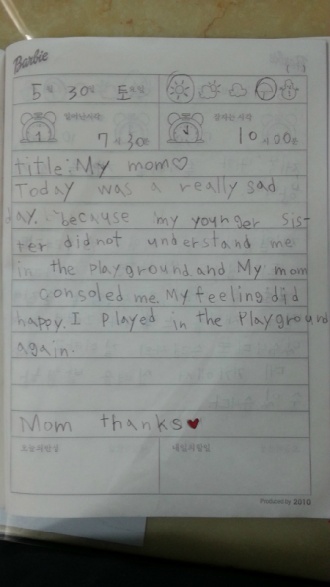 Barbie
5월 30일 토요일
일어난시각 잠자는 시각
7시 30분 10시 00분
title: My mom♡
Today was a really sad
day. because my younger sis-
ter did not understand me
in the playground and My mom
consoled me. My feeling did
happy. I played in the Playground
again.
Mom thanks♥
오늘의 반성 내일의 할일
Produced by 2010